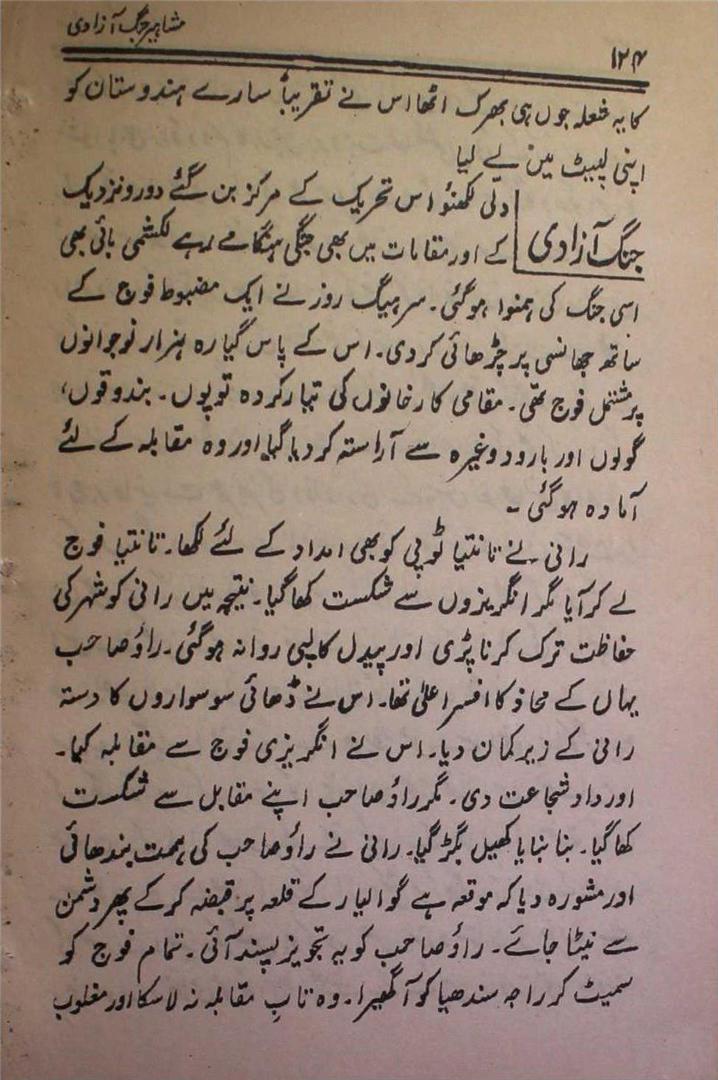 مشاہیر جنگ آزادی
۱۲۴
کا یہ شعلہ جوں ہی بھڑک اٹھا اس نے تقریباً سارے ہندوستان کو
اپنی لپیٹ میں لے لیا
جنگ آزادی
دلی لکھنؤ اس تحریک کے مرکز بن گئے دور و نزدیک
کے اور مقامات میں بھی جنگی ہنگامے رہے لکشمی بائی بھی
اسی جنگ کی ہمنوا ہو گئی۔ سر ہیگ روز نے ایک مضبوط فوج کے
ساتھ جھانسی پر چڑھائی کر دی۔ اس کے پاس گیارہ ہزار نوجوانوں
پر مشتمل فوج تھی۔ مقامی کارخانوں کی تیار کردہ توپوں۔ بندوقوں،
گولوں اور بارود وغیرہ سے آراستہ کر دیا گیا اور وہ مقابلہ کے لئے
آمادہ ہو گئی۔
رانی نے تانتیا ٹوپی کو بھی امداد کے لئے لکھا۔ تانتیا فوج
لے کر آیا مگر انگریزوں سے شکست کھا گیا۔ نتیجہ میں رانی کو شہر کی
حفاظت ترک کرنا پڑی اور پیدل کالپی روانہ ہو گئی۔ راؤ صاحب
یہاں کے محاذ کا افسر اعلیٰ تھا۔ اس نے ڈھائی سو سواروں کا دستہ
رانی کے زیر کمان دیا۔ اس نے انگریزی فوج سے مقابلہ کیا۔
اور داد شجاعت دی۔ مگر راؤ صاحب اپنے مقابل سے شکست
کھا گیا۔ بنا بنایا کھیل بگڑ گیا۔ رانی نے راؤ صاحب کی ہمت بندھائی
اور مشورہ دیا کہ موقعہ ہے گوالیار کے قلعہ پر قبضہ کر کے پھر دشمن
سے نپٹا جائے۔ راؤ صاحب کو یہ تجویز پسند آئی۔ تمام فوج کو
سمیٹ کر راجہ سندھیا کو آ گھیرا۔ وہ تابِ مقابلہ نہ لا سکا اور مغلوب